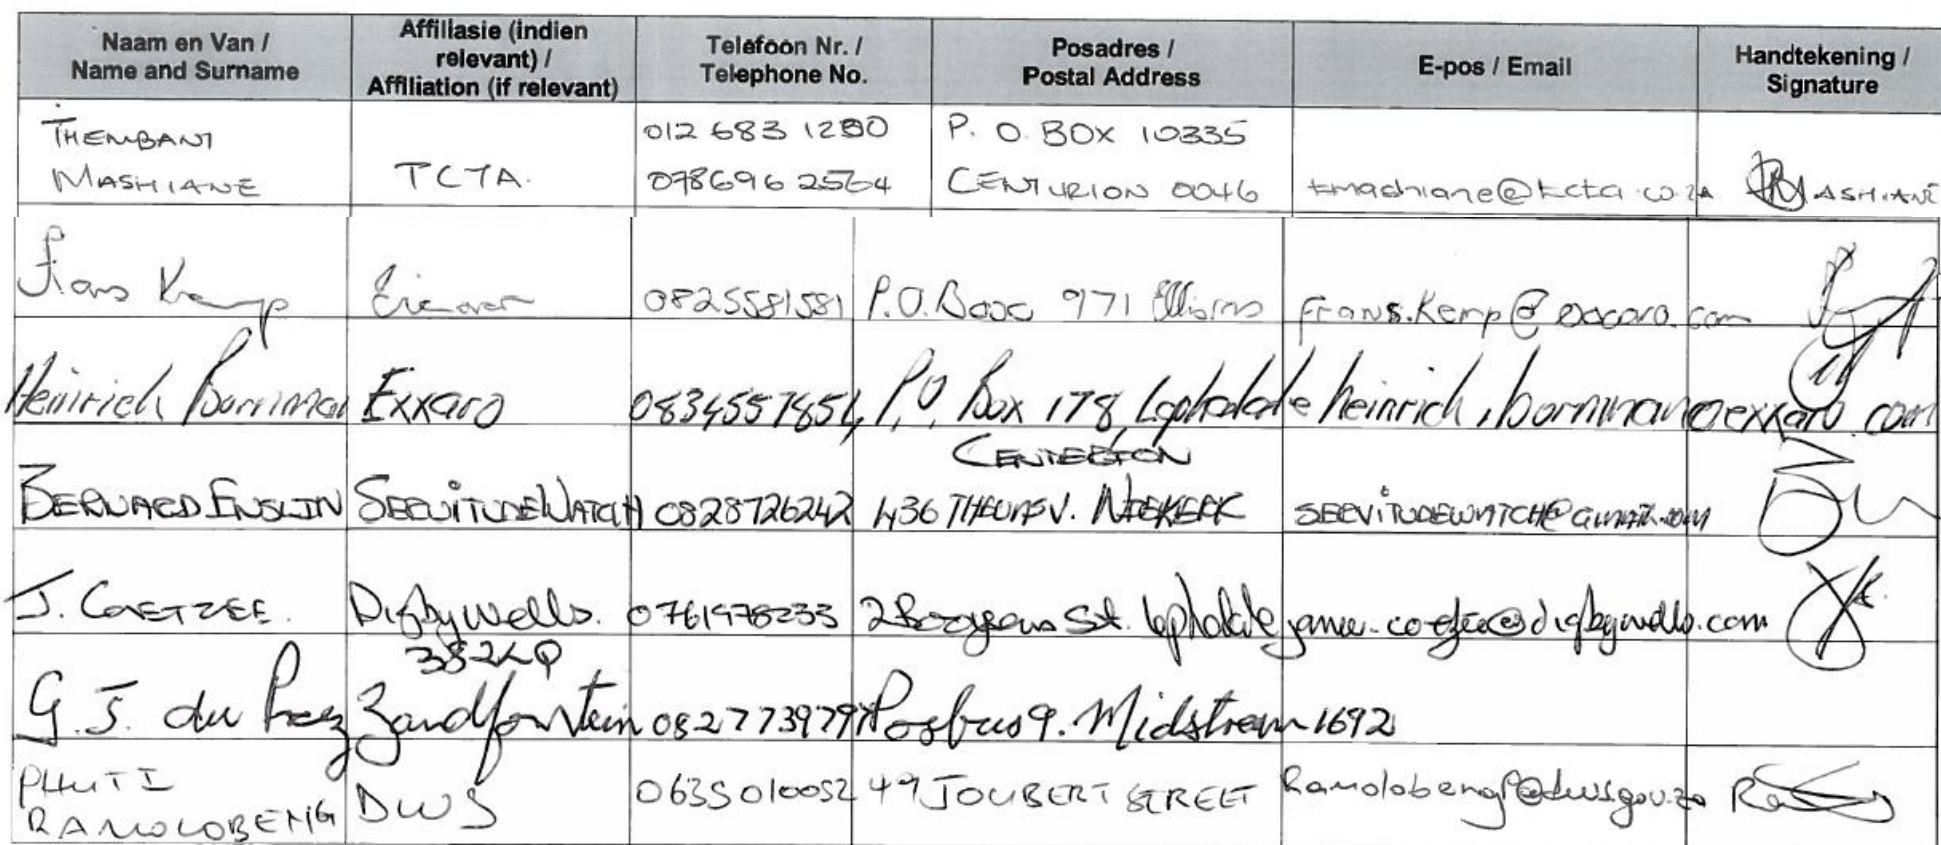 Naam en Van / Name and Surname
Affiliasie (indien relevant) / Affiliation (if relevant)
Telefoon Nr. / Telephone No.
Posadres / Postal Address
E-pos / Email
Handtekening / Signature
THEMBANI MASHIANE TCTA. 012 683 1200 078696 2564 P. O. BOX 10335 CENTURION 0046 tmashiane@tcta.co.za MASHIANE
Frans Kemp Eienaar 0825581581 P.O. Box 971 Ellisras Frans.Kemp@exxaro.com
Heinrich Bornman Exxaro P.O. Box 178, Lephalale heinrich.bornman@exxaro.com
CENTERTON
BERNARD ENSLIN SERVITUDEWATCH 0828726242 436 THEUNS V. NIEKERK SERVITUDEWATCH@GMAIL.COM
J. COETZEE. Digby Wells. 0761978233 2 Booysens St. Lephalale @digbywells.com
382LQ
G. J. du Preez Zandfontein Posbus 9. Midstream 1692
PHUTI RAMOLOBENG DWS 0635010052 49 JOUBERT STREET RamolobengP@dws.gov.za